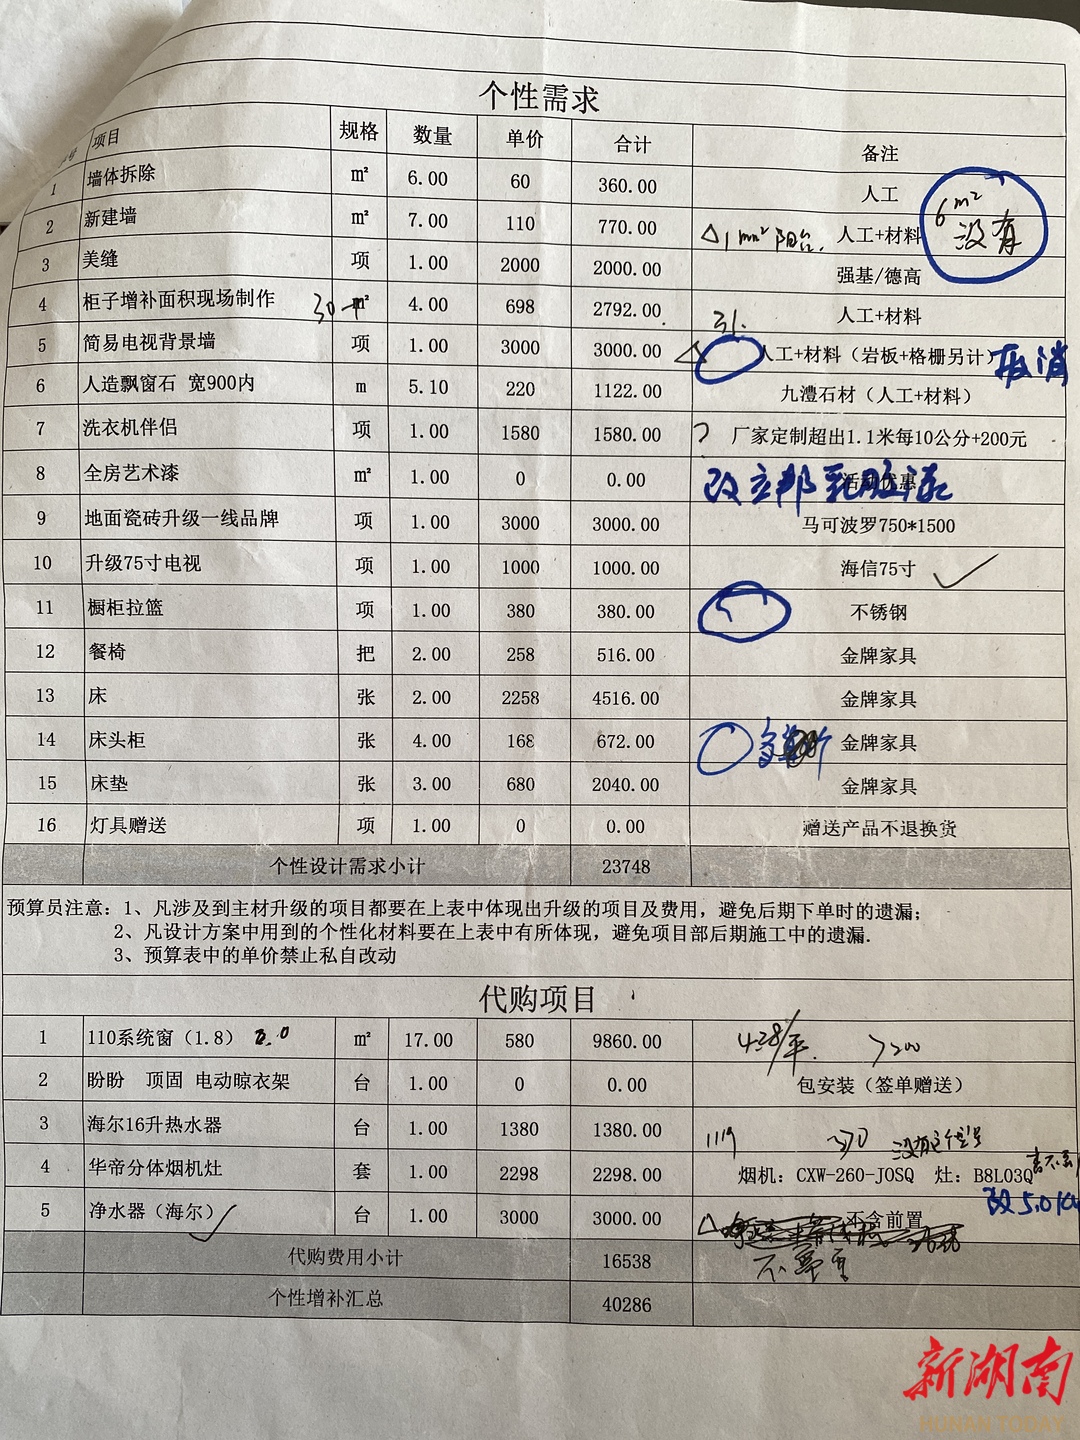 个性需求
项目 规格 数量 单价 合计 备注
1 墙体拆除 m² 6.00 60 360.00 人工 6m² 没有
2 新建墙 m² 7.00 110 770.00 △1m² 阳台. 人工+材料
3 美缝 项 1.00 2000 2000.00 强基/德高
4 柜子增补面积现场制作 30个 m² 4.00 698 2792.00 人工+材料
5 简易电视背景墙 项 1.00 3000 3000.00 △ 人工+材料（岩板+格栅另计） 取消
6 人造飘窗石 宽900内 m 5.10 220 1122.00 九澧石材（人工+材料）
7 洗衣机伴侣 项 1.00 1580 1580.00 ? 厂家定制超出1.1米每10公分+200元
8 全房艺术漆 m² 1.00 0 0.00 活动优惠 改立邦乳胶漆
9 地面瓷砖升级一线品牌 项 1.00 3000 3000.00 马可波罗750*1500
10 升级75寸电视 项 1.00 1000 1000.00 海信75寸
11 橱柜拉篮 项 1.00 380 380.00 不锈钢
12 餐椅 把 2.00 258 516.00 金牌家具
13 床 张 2.00 2258 4516.00 金牌家具
14 床头柜 张 4.00 168 672.00 金牌家具
15 床垫 张 3.00 680 2040.00 金牌家具
16 灯具赠送 项 1.00 0 0.00 赠送产品不退换货
个性设计需求小计 23748
预算员注意：1、凡涉及到主材升级的项目都要在上表中体现出升级的项目及费用，避免后期下单时的遗漏；
2、凡设计方案中用到的个性化材料要在上表中有所体现，避免项目部后期施工中的遗漏.
3、预算表中的单价禁止私自改动
代购项目
1 110系统窗（1.8） 2.0 m² 17.00 580 9860.00 428/平. >200
2 盼盼 顶固 电动晾衣架 台 1.00 0 0.00 包安装（签单赠送）
3 海尔16升热水器 台 1.00 1380 1380.00 1119 370 没有这个型号
4 华帝分体烟机灶 套 1.00 2298 2298.00 烟机：CXW-260-JOSQ 灶：B8L03Q 改5.0kw
5 净水器（海尔） 台 1.00 3000 3000.00 △ 不含前置
代购费用小计 16538 不需要
个性增补汇总 40286
新湖南
HUNAN TODAY